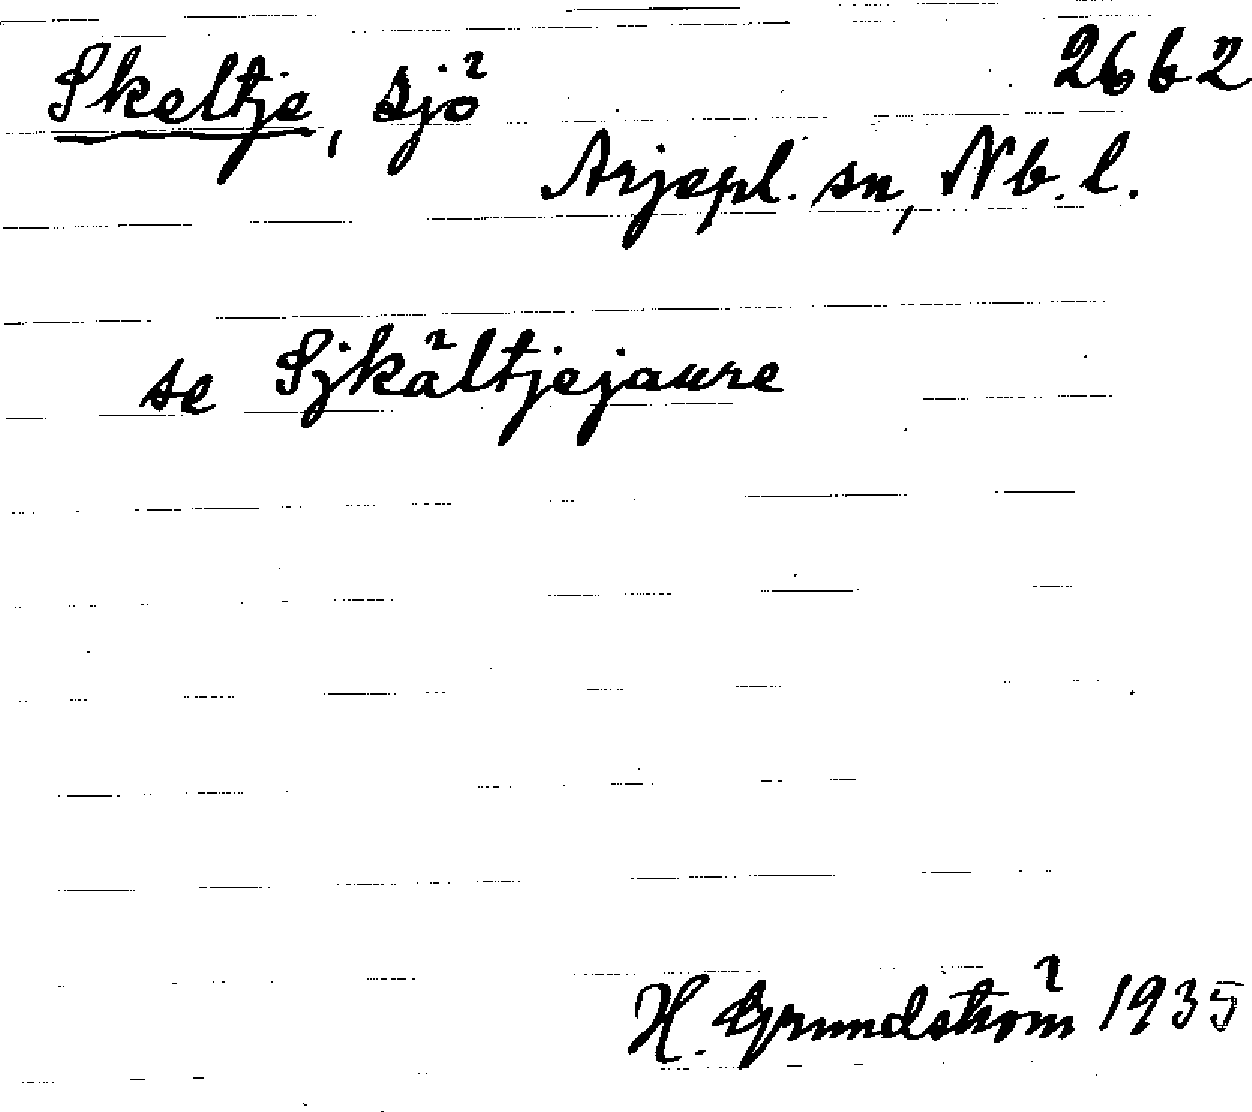 Skeltje, sjö 26 b 2
Arjepl. sn, Nb. l.
se Sjkältjejaure
H. Grundström 1935